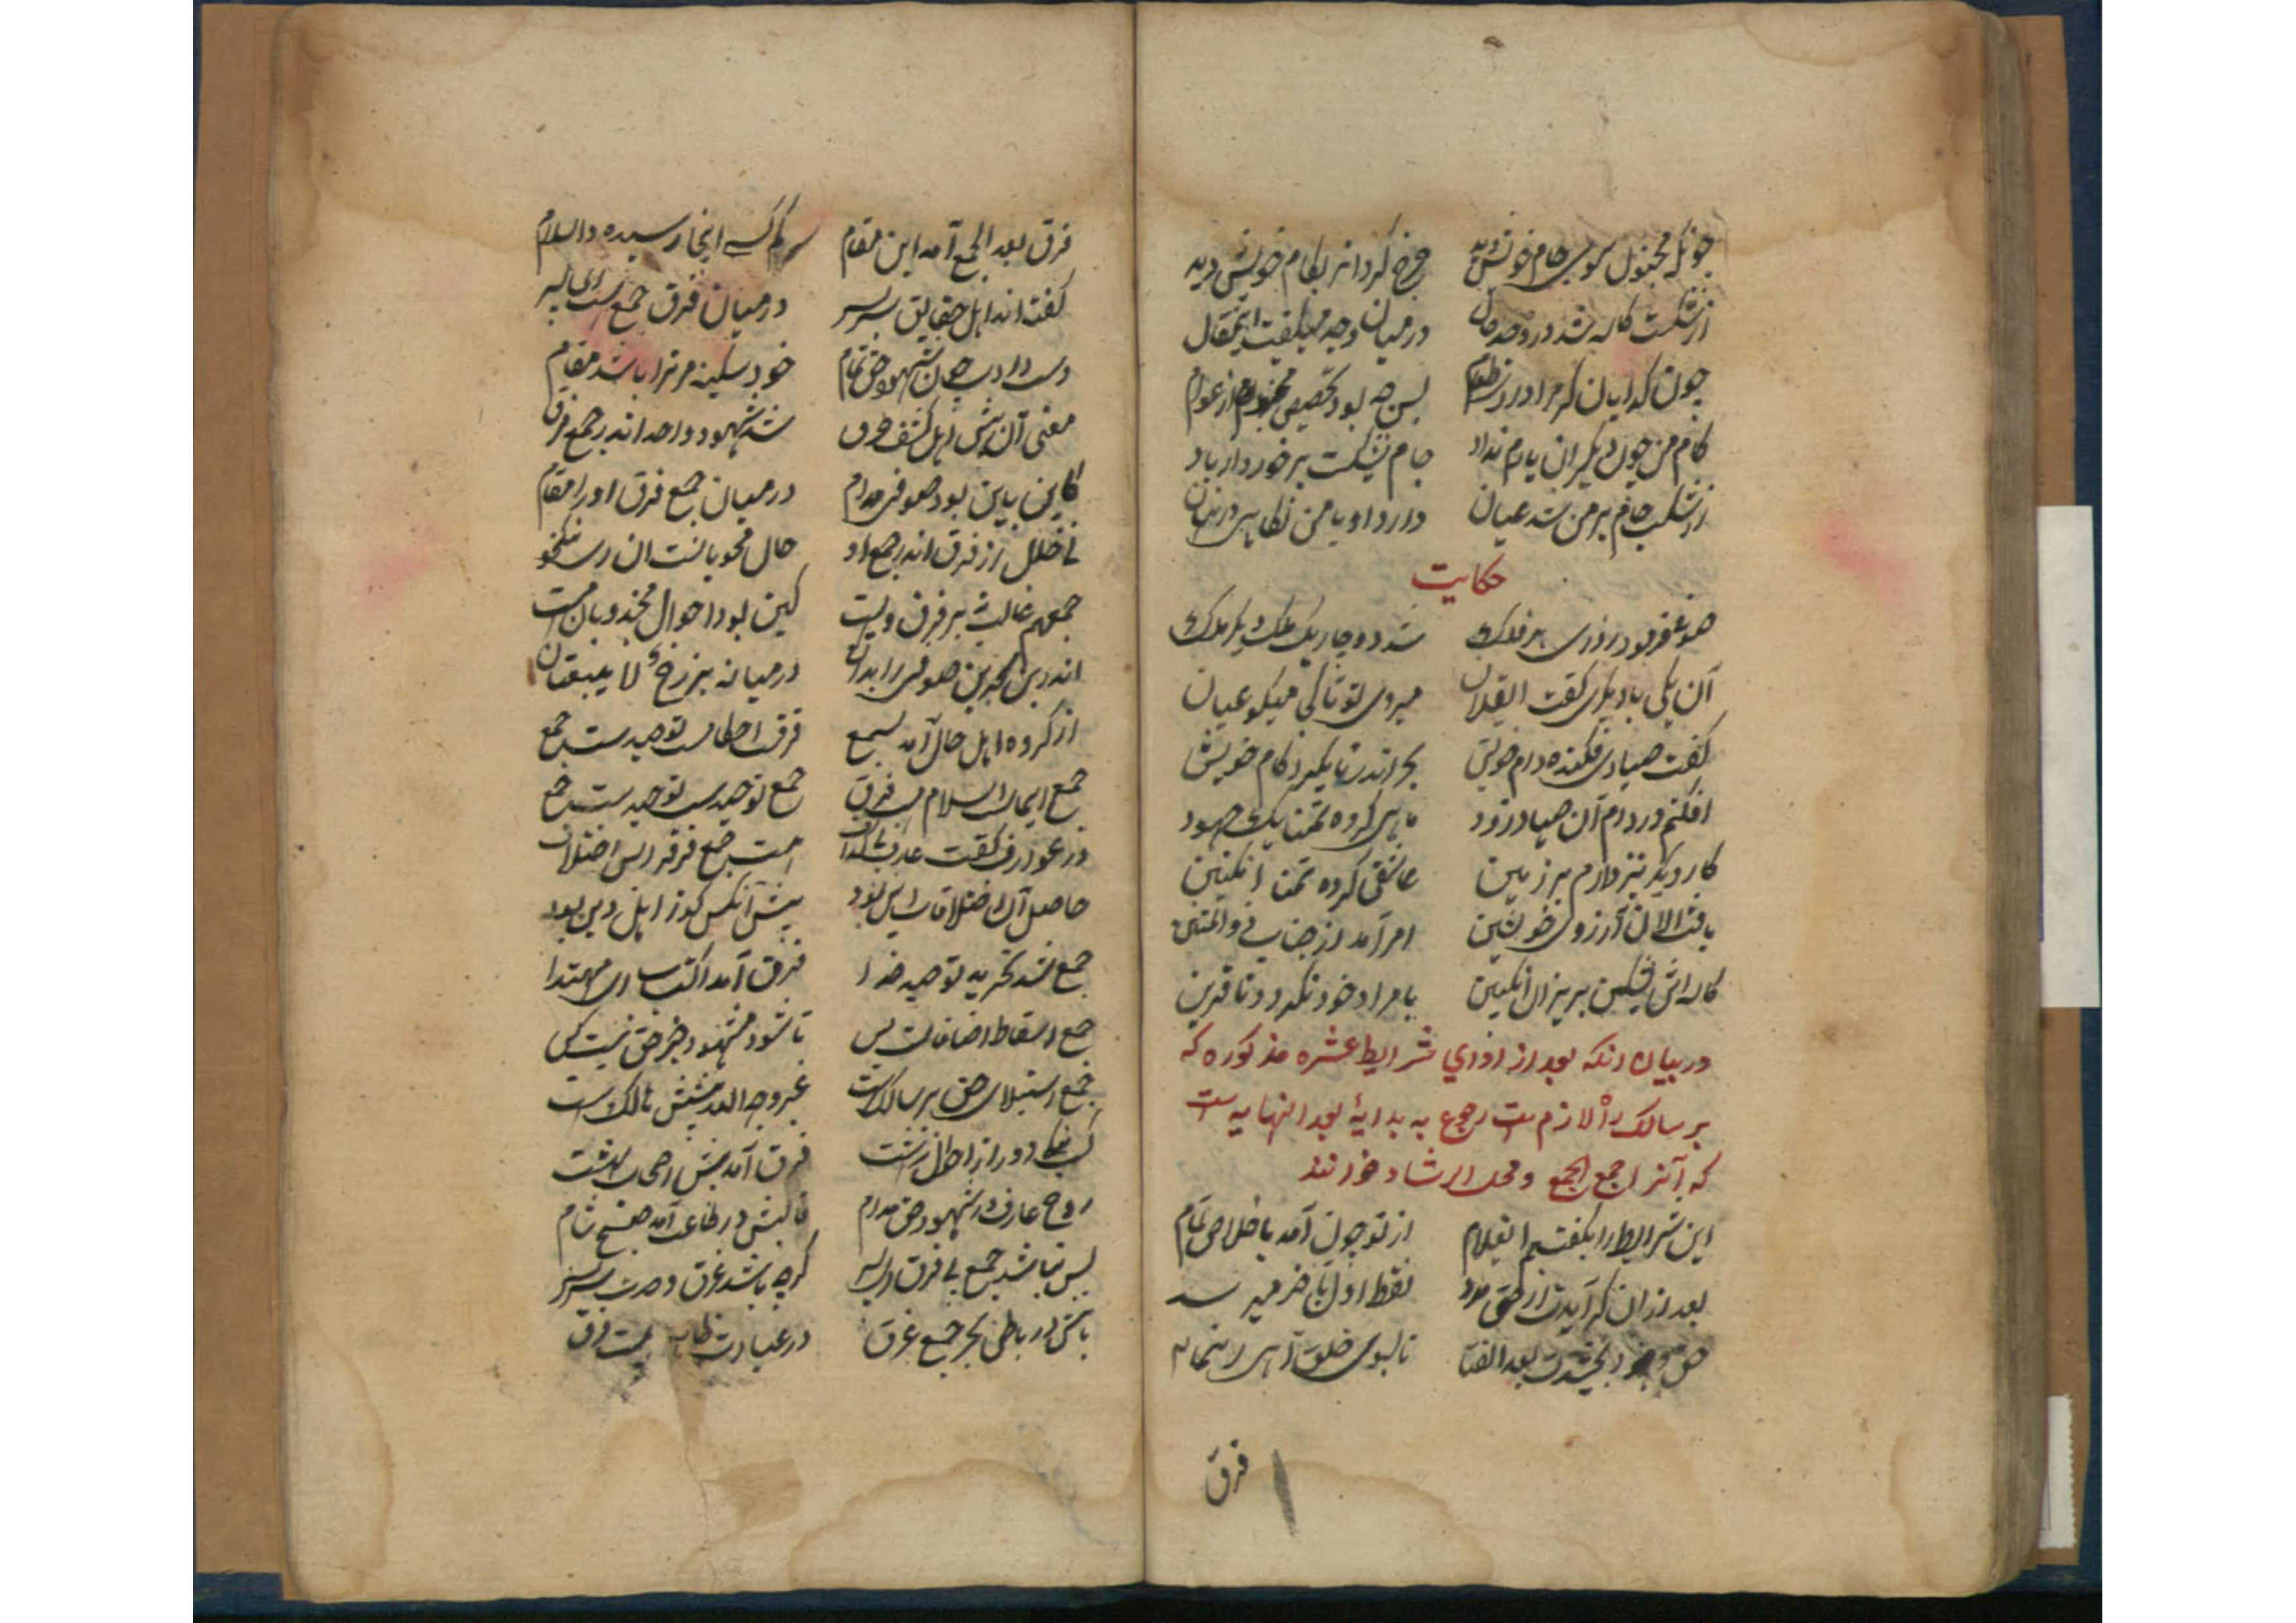 چونکه مجنون سوی جام خویش دید چرخ گردانرا بکام خویش دید
از شکست کاسه شد در وجد حال در میان وجد میگفت این مقال
چون گدایان گر مرا دادی طعام پس چه بود تخصیص مجنون از عوام
کام من چون دیگران یارم نداد جام بشکست برخوردار باد
از شکست جام بر من شد عیان دارد او با من نگاهی در نهان
حکایت
شد دوچار یک ملک دیگر ملک
آن یکی با دیگری گفت ای فلان میروی تو تا کجا میگو عیان
گفت صیادی فکنده دام خویش بحر اندر تا بگیرد کام خویش
افکنم در دام آن صیاد زود ماهی کرده تمنا یک جهود
کار دیگر نیز دارم بر زمین عاشقی کرده تمنا انگبین
یافت الان آرزوی خویشین امر آمد از جناب ذو المتین
کاسه اش بشکن بریز آن انگبین با مراد خود نگردد تا قرین
در بیان آنکه بعد از ادای شرایط عشره مذکوره که
بر سالک را لازم ست رجوع به بدایهٔ بعد النهایه ست
که آنرا جمع الجمع و محل ارشاد خوانند
این شرایط را بگفتیم ای غلام از تو چون آمد باخلاص تمام
بعد از آن گر آیدت از حق مدد نقطه اول بآخر میرسد
حق وجود بخشدت بعد الفنا تا بسوی خلق راهی رهنما
فرق
فرق بعد الجمع آمد این مقام کم کسی اینجا رسیده والسلام
گفته اند اهل حقایق سربسر در میان فرق جمع است ای پسر
دست دادت چون شهود حق تمام خود سکینه مر ترا باشد مقام
معنی آن پیش اهل کشف و حرق شد شهود واحد اندر جمع فرق
کاین باین بود صوفی مدام در میان جمع فرق او را مقام
نی خلل از فرق اندر جمع او حال محبوبانست ان ای نیکخو
جمعهم غالب بر فرق ویست کین بود احوال مجذوبان مست
اندرین بحرین صوفی را بدان در میانه برزخ لا یبغیان
از گروه اهل حال آمد بسمع فرقت احکامست توحیدست جمع
جمع ایمان اسلام ست فرق جمع توحیدست توحیدست جمع
هست جمع فرق را بس اختلاف
حاصل آن اختلافات این بود پیش آنکس کو ز اهل دین بود
جمع شد تجرید توحید خدا فرق آمد اکتساب ای مهتدا
جمع اسقاط اضافات بس تا شود مشهود جز حق نیست کس
جمع استیلای حق بر سالک ست غیر وجه الله پیشش هالک ست
فرق آمد پیش اصحاب بهشت
روح عارف در شهود حق مدام قالبش در طاعت آمد صبح شام
پس نباشد جمع بی فرق ای پسر گرچه باشد غرق وحدت سربسر
باش در باطن بحر جمع غرق در عبادت ظاهر ست فرق